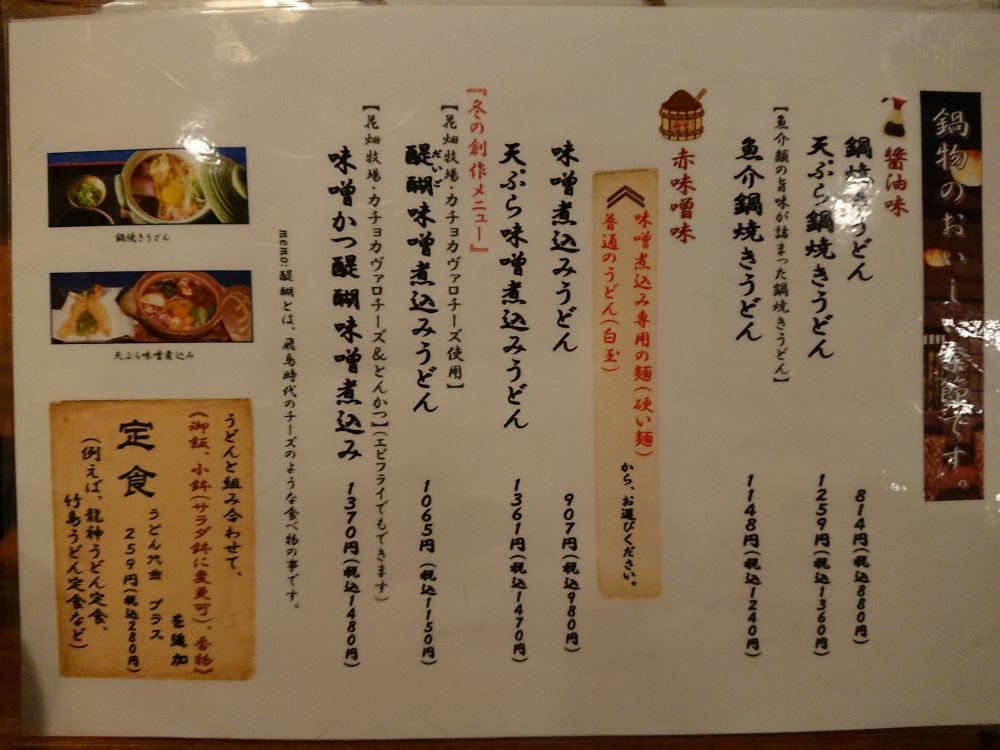 鍋物のおいしい季節です。
醤油味
鍋焼きうどん 814円(税込880円)
天ぷら鍋焼きうどん 1259円(税込1360円)
【魚介類の旨味が詰まった鍋焼きうどん】
魚介鍋焼きうどん 1148円(税込1240円)
赤味噌味
味噌煮込み専用の麺(硬い麺)
普通のうどん(白玉)
から、お選びください。
味噌煮込みうどん 907円(税込980円)
天ぷら味噌煮込みうどん 1361円(税込1470円)
『冬の創作メニュー』
【花畑牧場・カチョカヴァロチーズ使用】
だいご
醍醐味噌煮込みうどん 1065円(税込1150円)
【花畑牧場・カチョカヴァロチーズ&とんかつ】(エビフライでもできます)
味噌かつ醍醐味噌煮込み 1370円(税込1480円)
memo:醍醐とは、飛鳥時代のチーズのような食べ物の事です。
鍋焼きうどん
天ぷら味噌煮込み
うどんと組み合わせて、
(御飯、小鉢(サラダ鉢に変更可)、香物)
を追加
定食
うどん代金 プラス
259円(税込280円)
(例えば、龍神うどん定食、
竹島うどん定食など)